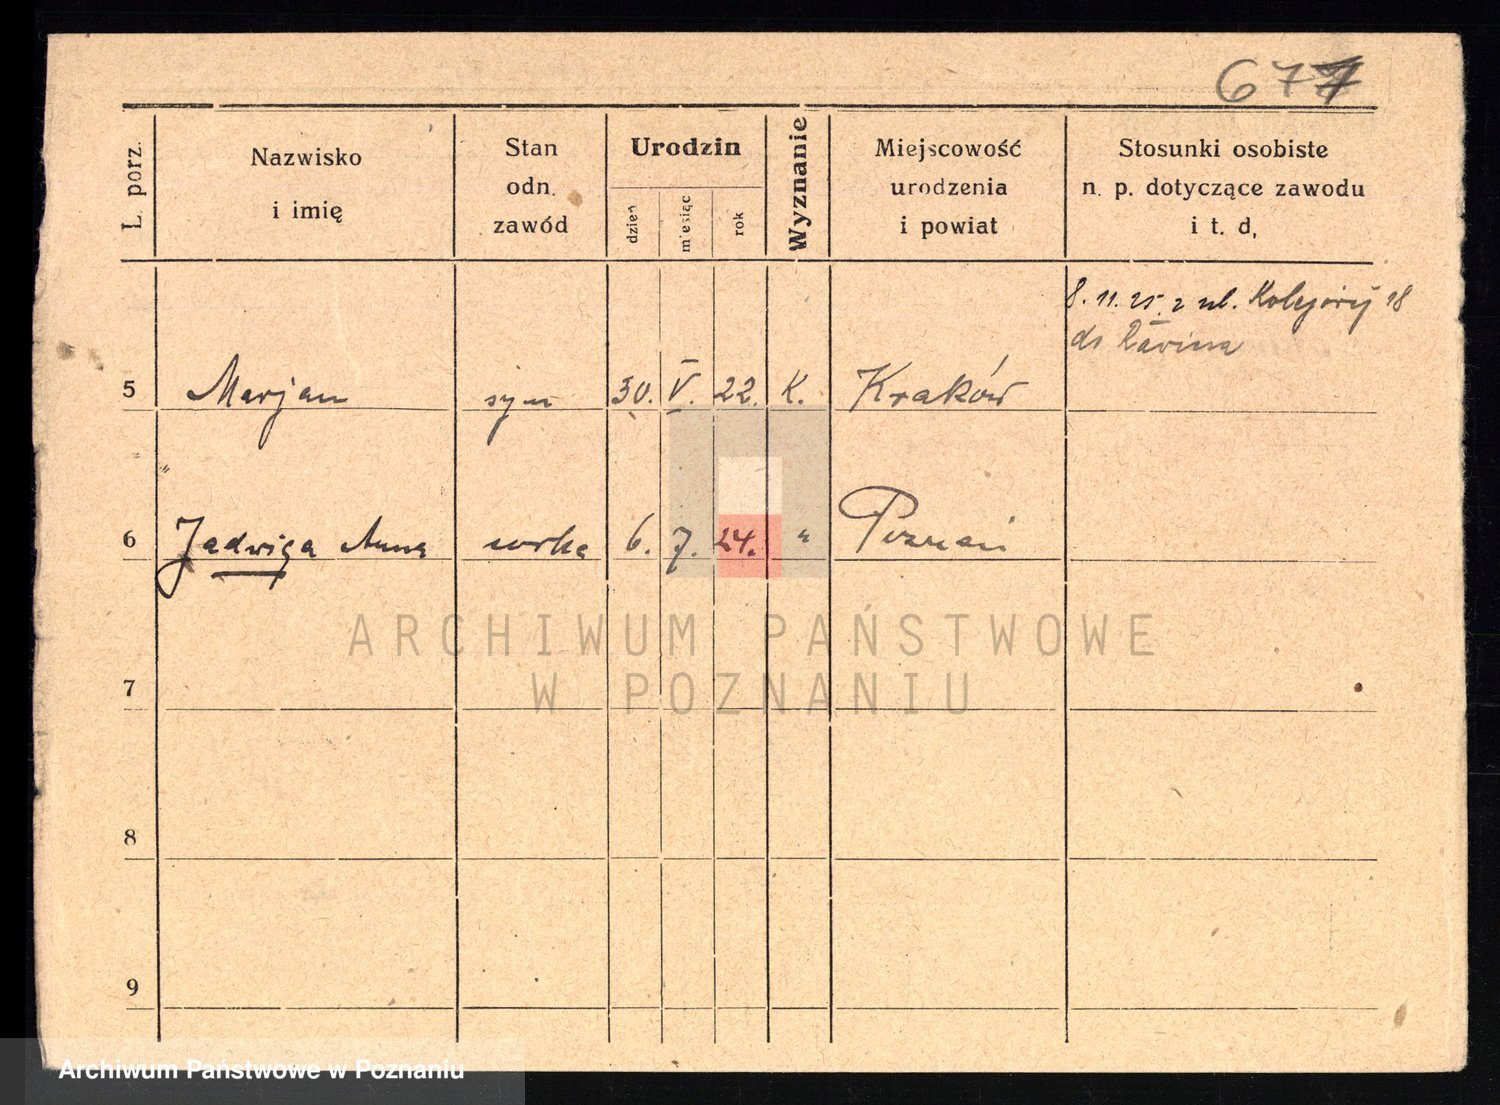 677
L. porz.
Nazwisko
i imię
Stan
odn.
zawód
Urodzin
dzień
miesiąc
rok
Wyznanie
Miejscowość
urodzenia
i powiat
Stosunki osobiste
n. p. dotyczące zawodu
i t. d,
8. 11. 25. z ul. Kolejowej 18
do
5 Marjan syn 30. V. 22. K. Kraków
6 Jadwiga Anna córka 6. 7. 24. " Poznań
7
8
9
ARCHIWUM PAŃSTWOWE
W POZNANIU
Archiwum Państwowe w Poznaniu